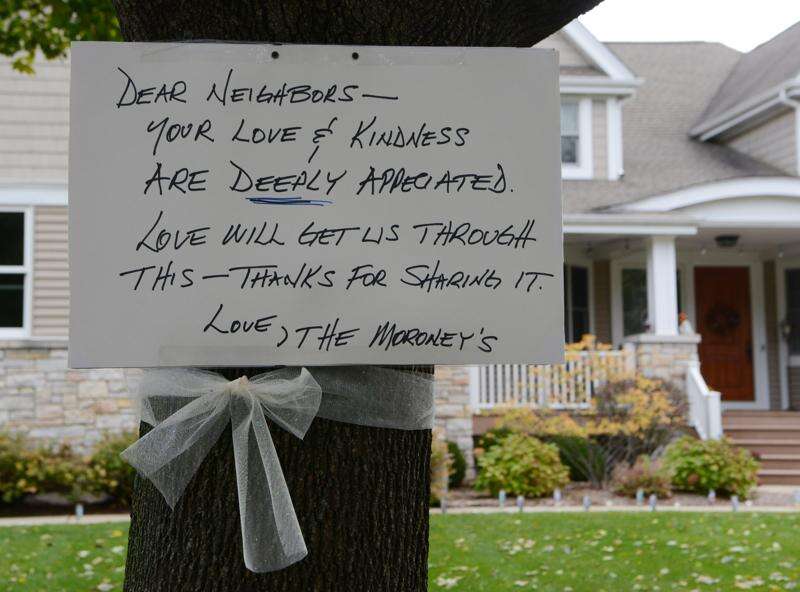 DEAR NEIGHBORS—
YOUR LOVE & KINDNESS
ARE DEEPLY APPECIATED.
LOVE WILL GET US THROUGH
THIS—THANKS FOR SHARING IT.
LOVE, THE MORONEY'S